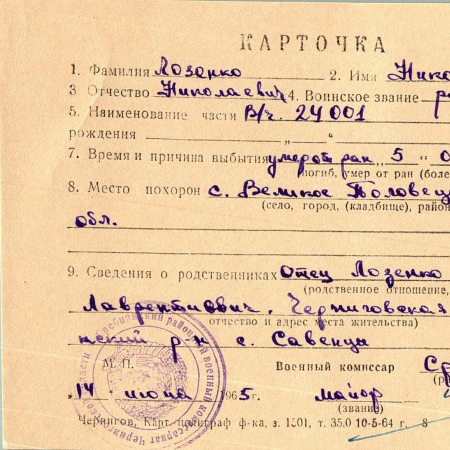 КАРТОЧКА
1. Фамилия Лозенко 2. Имя Нико
3 Отчество Николаевич 4. Воинское звание ря
5. Наименование части В/ч. 24001
рождения "
7. Время и причина выбытия умер от ран „5“ о
погиб, умер от ран (боле
8. Место похорон с. Великое Половец
(село, город, (кладбище), район
обл.
9. Сведения о родственниках Отец Лозенко
(родственное отношение,
Лаврентиевич, Черниговская
отчество и адрес места жительства)
р-н с. Савенцы
М. П. Военный комиссар Ср
(р
„14" июня 1965 г. майор
(звание)
Чернигов, Карт.-полиграф ф-ка, з. 1301, т. 35.0 10-5-64 г. 8
районный военный комиссариат